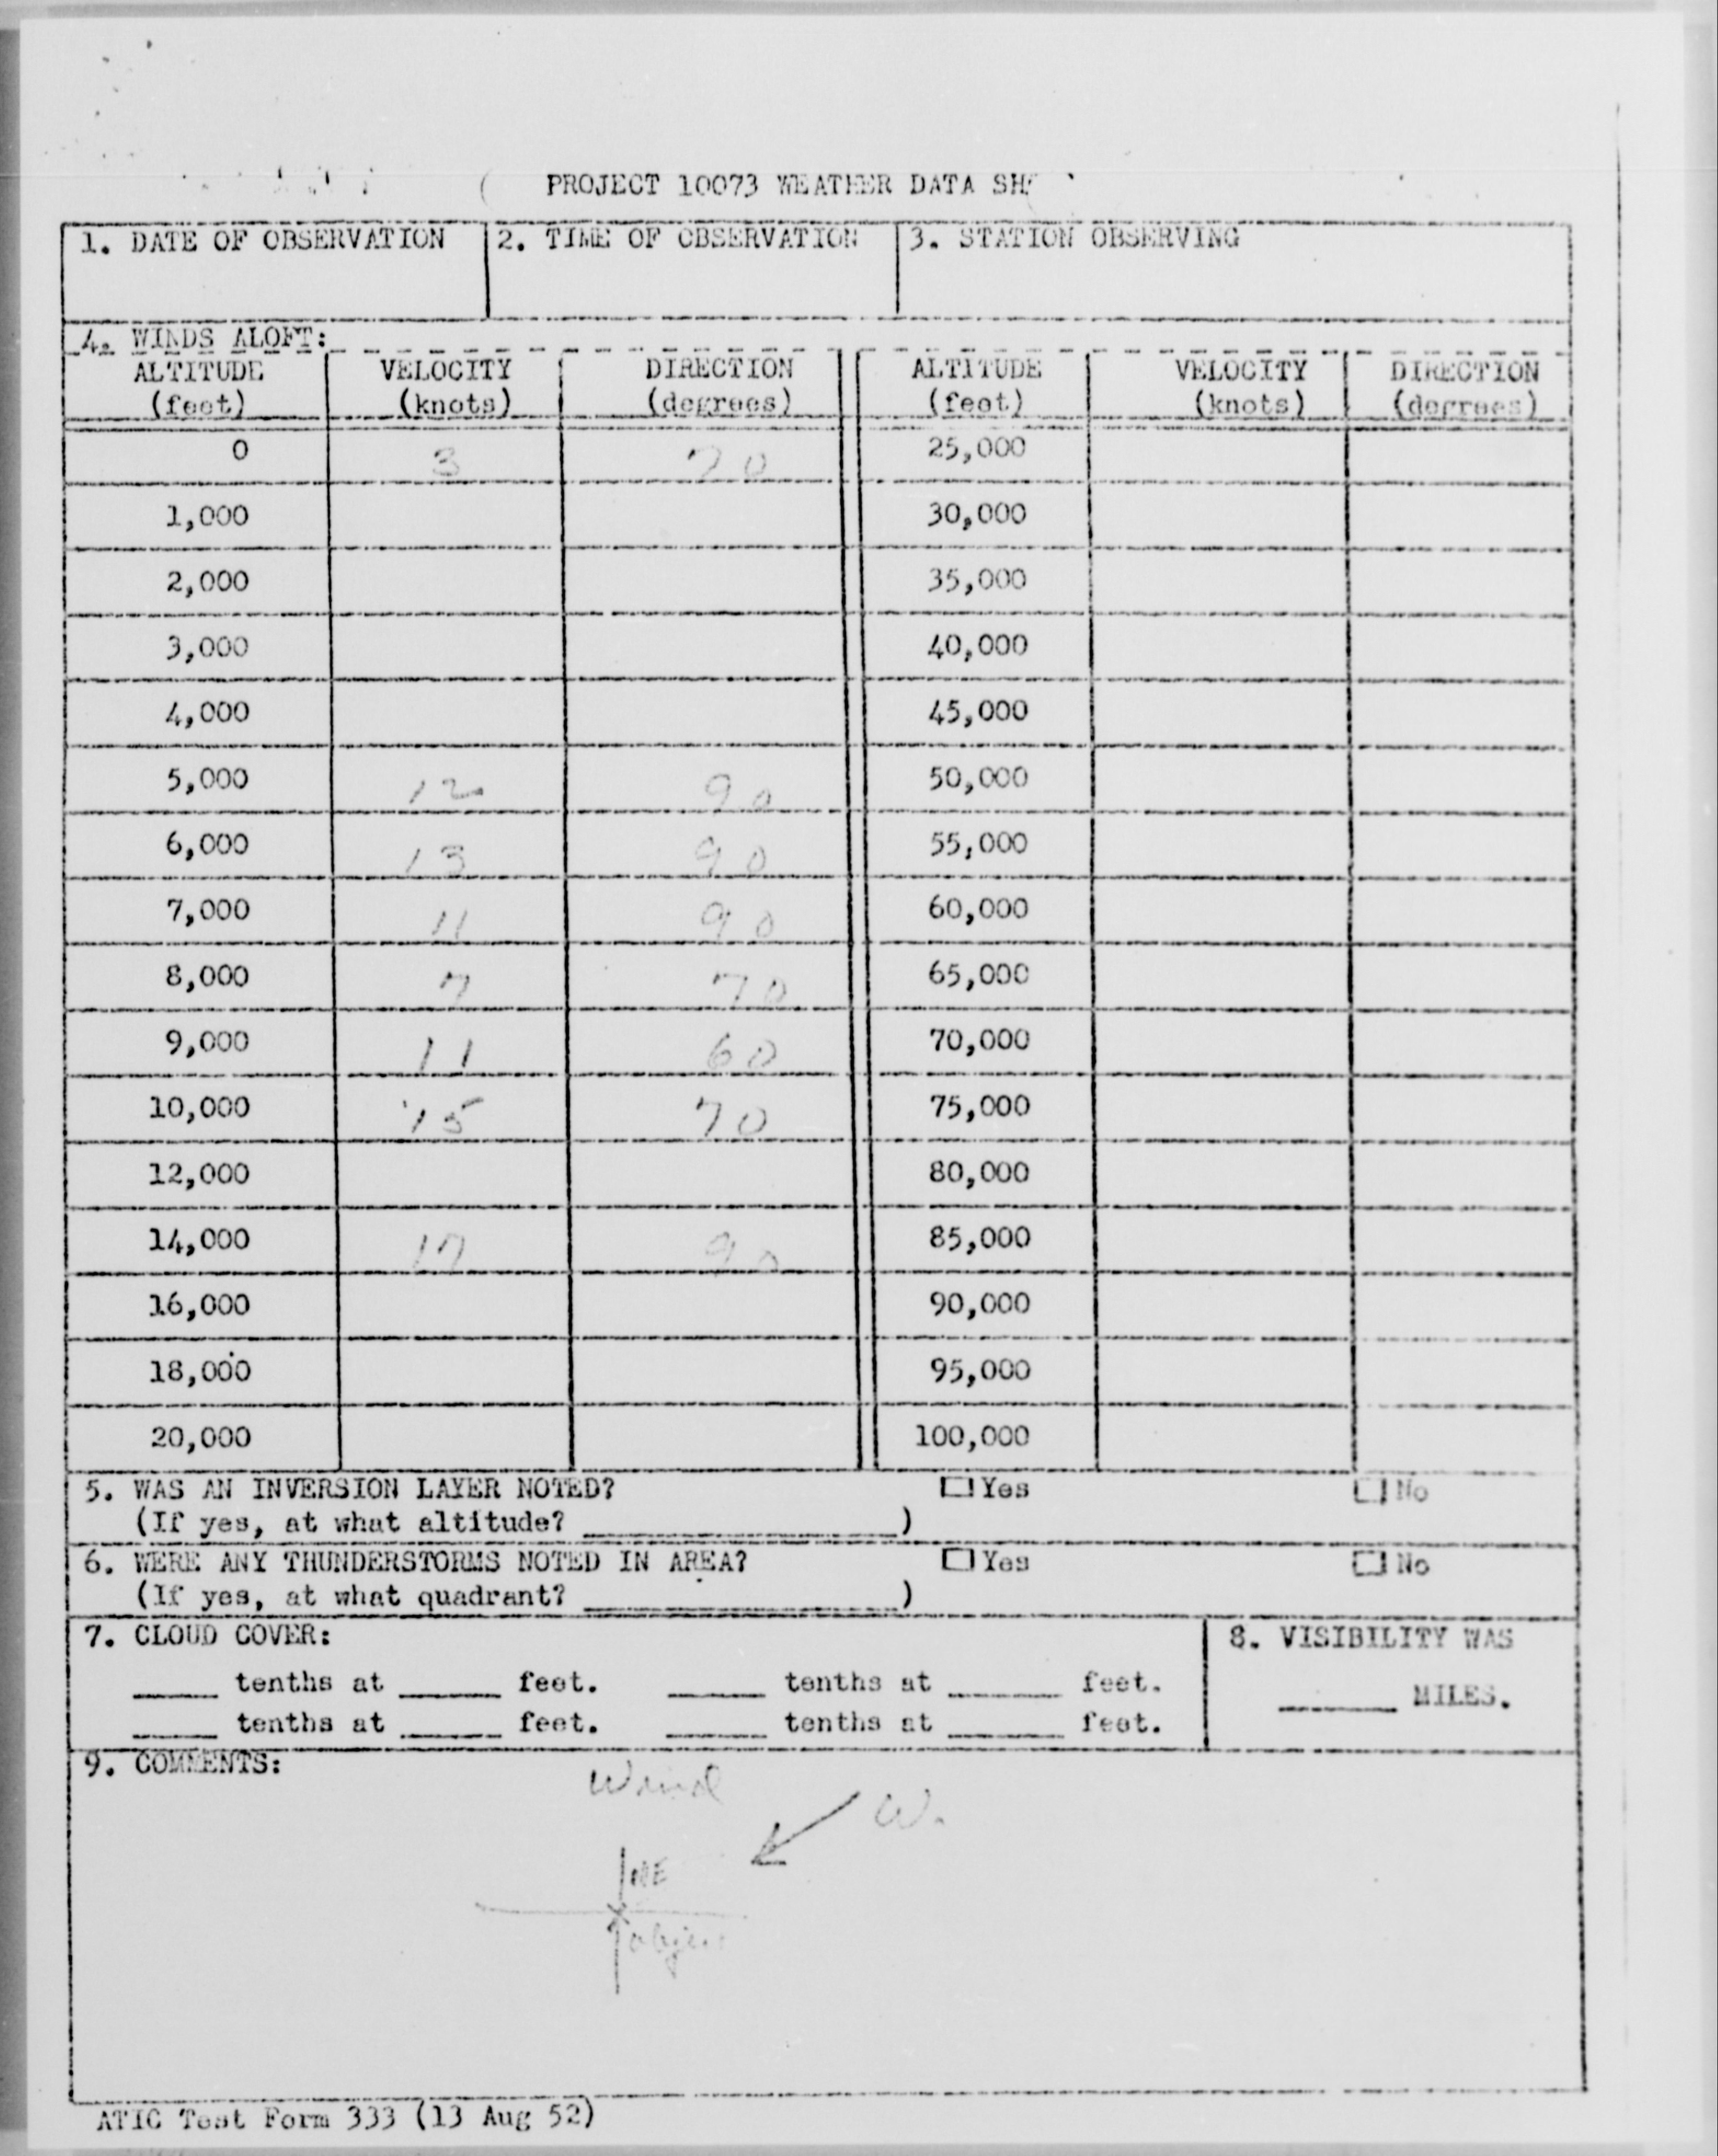 PROJECT 10073 WEATHER DATA
1. DATE OF OBSERVATION 2. TIME OF OBSERVATION 3. STATION OBSERVING
4. WINDS ALOFT:
ALTITUDE VELOCITY DIRECTION ALTITUDE VELOCITY DIRECTION
(feet) (knots) (degrees) (feet) (knots) (degrees)
0 3 70 25,000
1,000 30,000
2,000 35,000
3,000 40,000
4,000 45,000
5,000 12 90 50,000
6,000 13 90 55,000
7,000 11 90 60,000
8,000 7 70 65,000
9,000 11 60 70,000
10,000 15 70 75,000
12,000 80,000
14,000 17 90 85,000
16,000 90,000
18,000 95,000
20,000 100,000
5. WAS AN INVERSION LAYER NOTED? Yes No
(If yes, at what altitude? )
6. WERE ANY THUNDERSTORMS NOTED IN AREA? Yes No
(If yes, at what quadrant? )
7. CLOUD COVER: 8. VISIBILITY WAS
tenths at feet. tenths at feet. MILES.
tenths at feet. tenths at feet.
9. COMMENTS:
Wind
W.
NE
object
ATIC Test Form 333 (13 Aug 52)